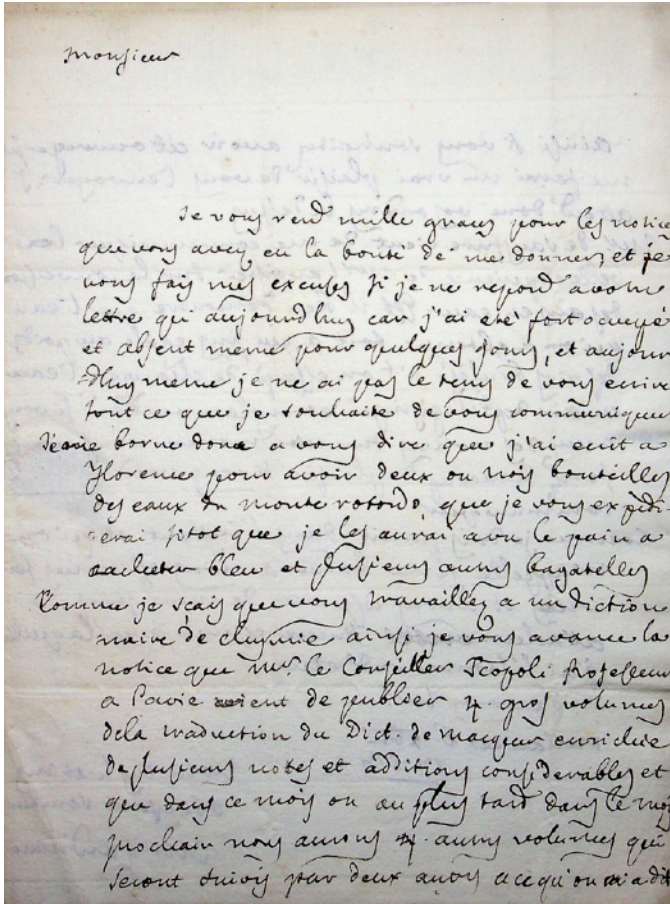 Monsieur
Je vous rend mille graces pour les notice
que vous avez eu la bonté de me donner, et je
vous fais mes excuses si je ne repond a votre
lettre qui aujourdhuy car j'ai eté fort occupé
et absent meme pour quelques jours, et aujour
dhuy meme je ne ai pas le tems de vous ecrire
tout ce que je souhaite de vous communiquer
borne donc a vous dire que j'ai ecrit a
Florence pour avoir deux ou trois bouteilles
des eaux de monte rotondo que je vous expedi-
erai sitot que je les aurai avec le pain a
cacheter bleu et plusieurs autres bagatelles
Comme je scais que vous travaillez a un diction
naire de chymie ainsi je vous avance la
notice que Mr. le Conseiller Scopoli Professeur
a Pavie vient de publier 4. gros volumes
dela traduction du Dict. de macquer enrichie
de plusieurs notes et additions considerables et
que dans ce mois ou au plus tard dans le moi
prochain nous aurons 4. autres volumes qui
seront suivis par deux autres a ce qu'on m'a dit